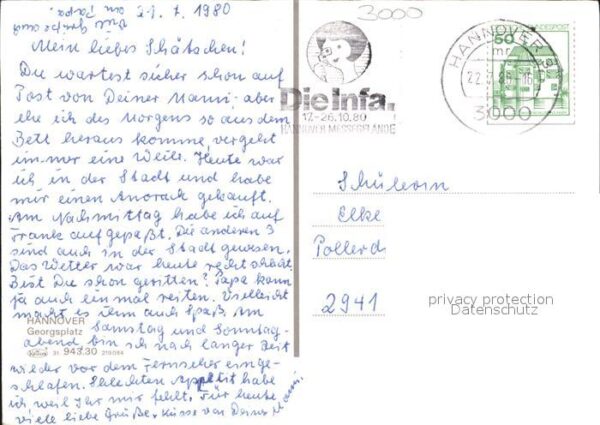 21.7.1980
Mein liebes Schätschen!
Du wartest sicher schon auf
Post von Deiner Mami - aber
ehe ich des Morgens so aus dem
Bett heraus komme, vergeht
immer eine Weile. Heute war
ich in der Stadt und habe
mir einen Anorack gekauft.
Am Nachmittag habe ich auf
Frank aufgepaßt. Die anderen 3
sind auch in der Stadt gewesen.
Das Wetter war heute recht schlecht.
Bist Du schon geritten? Papa kann
ja auch einmal reiten. Vielleicht
macht es ihm auch Spaß. Am
Samstag und Sonntag-
abend bin ich nach langer Zeit
wieder vor dem Fernseher einge-
schlafen. Schlechten Appetit habe
ich weil Ihr mir fehlt. Für heute
viele liebe Grüße + Küsse von Deiner Mami.
HANNOVER
Georgsplatz
31 943.30
3000
Die Infa.
17.-26.10.80
HANNOVER MESSEGELÄNDE
HANNOVER
3000
50
BUNDESPOST
Schülerin
Elke
Pollerd
2941
privacy protection
Datenschutz